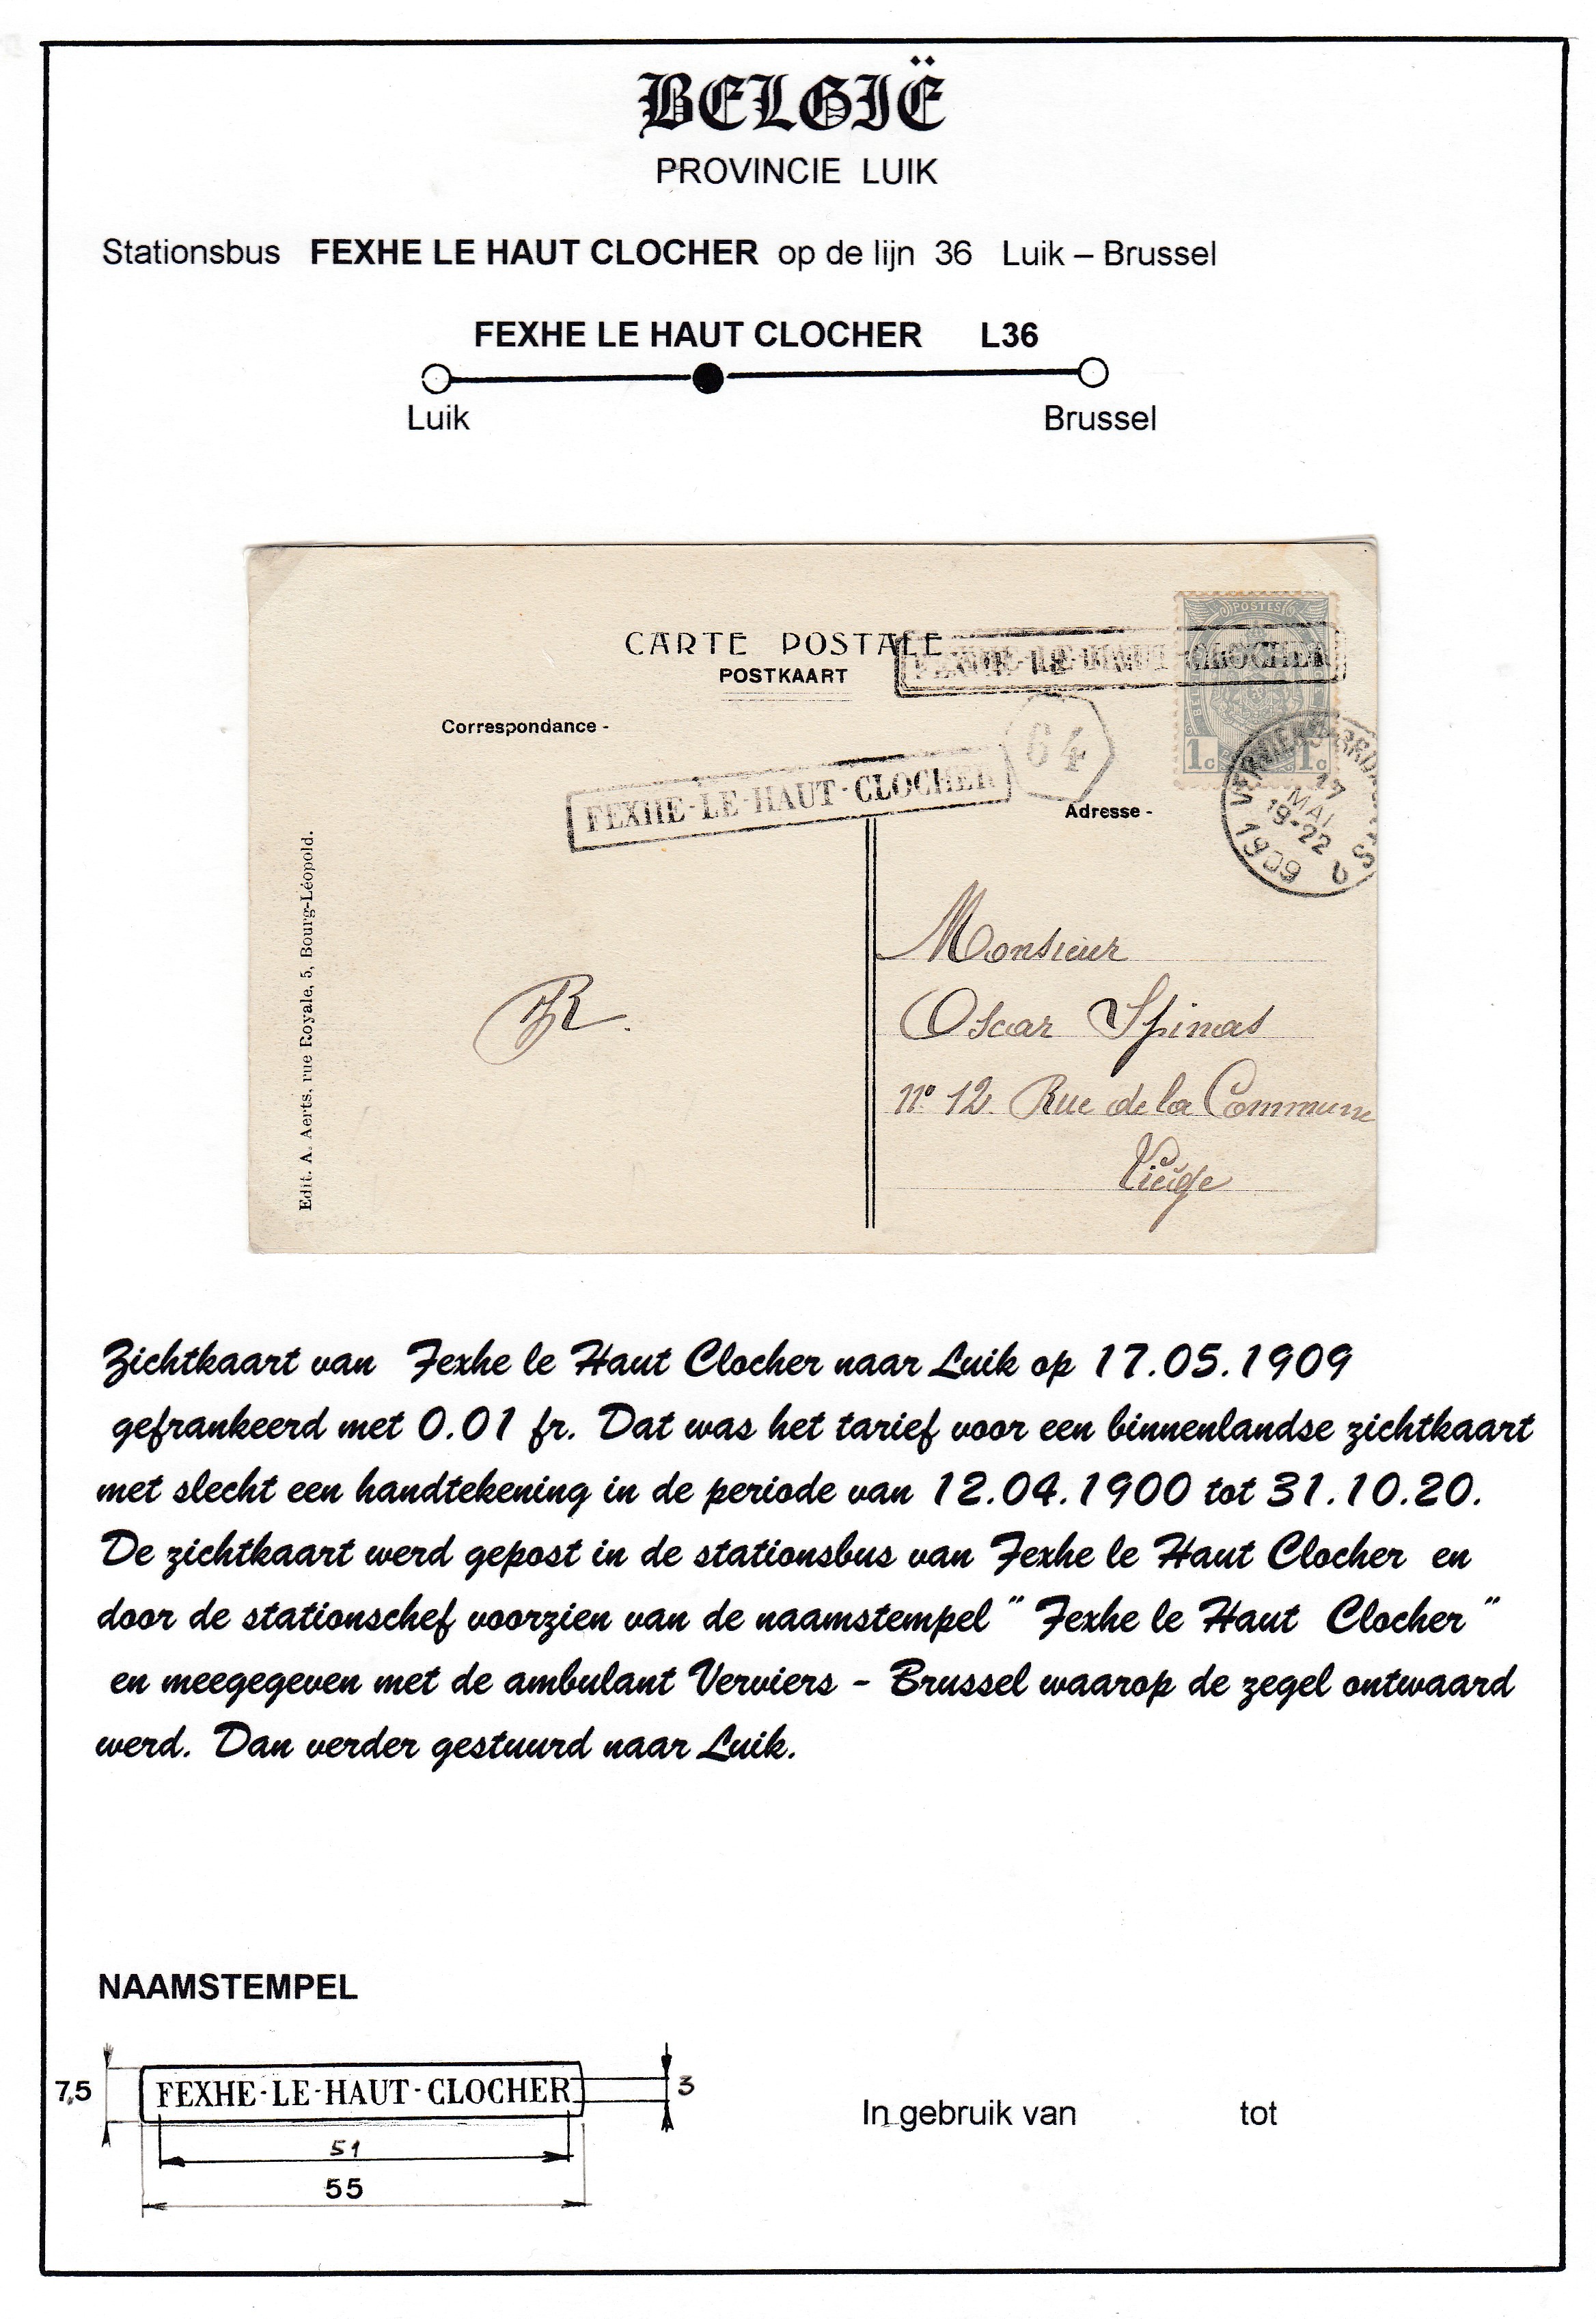 BELGIË
PROVINCIE LUIK
Stationsbus FEXHE LE HAUT CLOCHER op de lijn 36 Luik – Brussel
FEXHE LE HAUT CLOCHER L36
Luik Brussel
POSTES
CARTE POSTALE
FEXHE-LE-HAUT-CLOCHER
POSTKAART
Correspondance -
64
1c 1c
FEXHE-LE-HAUT-CLOCHER
Adresse -
17
MAI
19-22
1909
Edit. A. Aerts, rue Royale, 5, Bourg-Léopold.
Monsieur
Oscar Spinas
n° 12. Rue de la Commune
Liège
Zichtkaart van Fexhe le Haut Clocher naar Luik op 17.05.1909
gefrankeerd met 0.01 fr. Dat was het tarief voor een binnenlandse zichtkaart
met slecht een handtekening in de periode van 12.04.1900 tot 31.10.20.
De zichtkaart werd gepost in de stationsbus van Fexhe le Haut Clocher en
door de stationschef voorzien van de naamstempel " Fexhe le Haut Clocher "
en meegegeven met de ambulant Verviers - Brussel waarop de zegel ontwaard
werd. Dan verder gestuurd naar Luik.
NAAMSTEMPEL
7,5 FEXHE-LE-HAUT-CLOCHER 3
51
55
In gebruik van tot